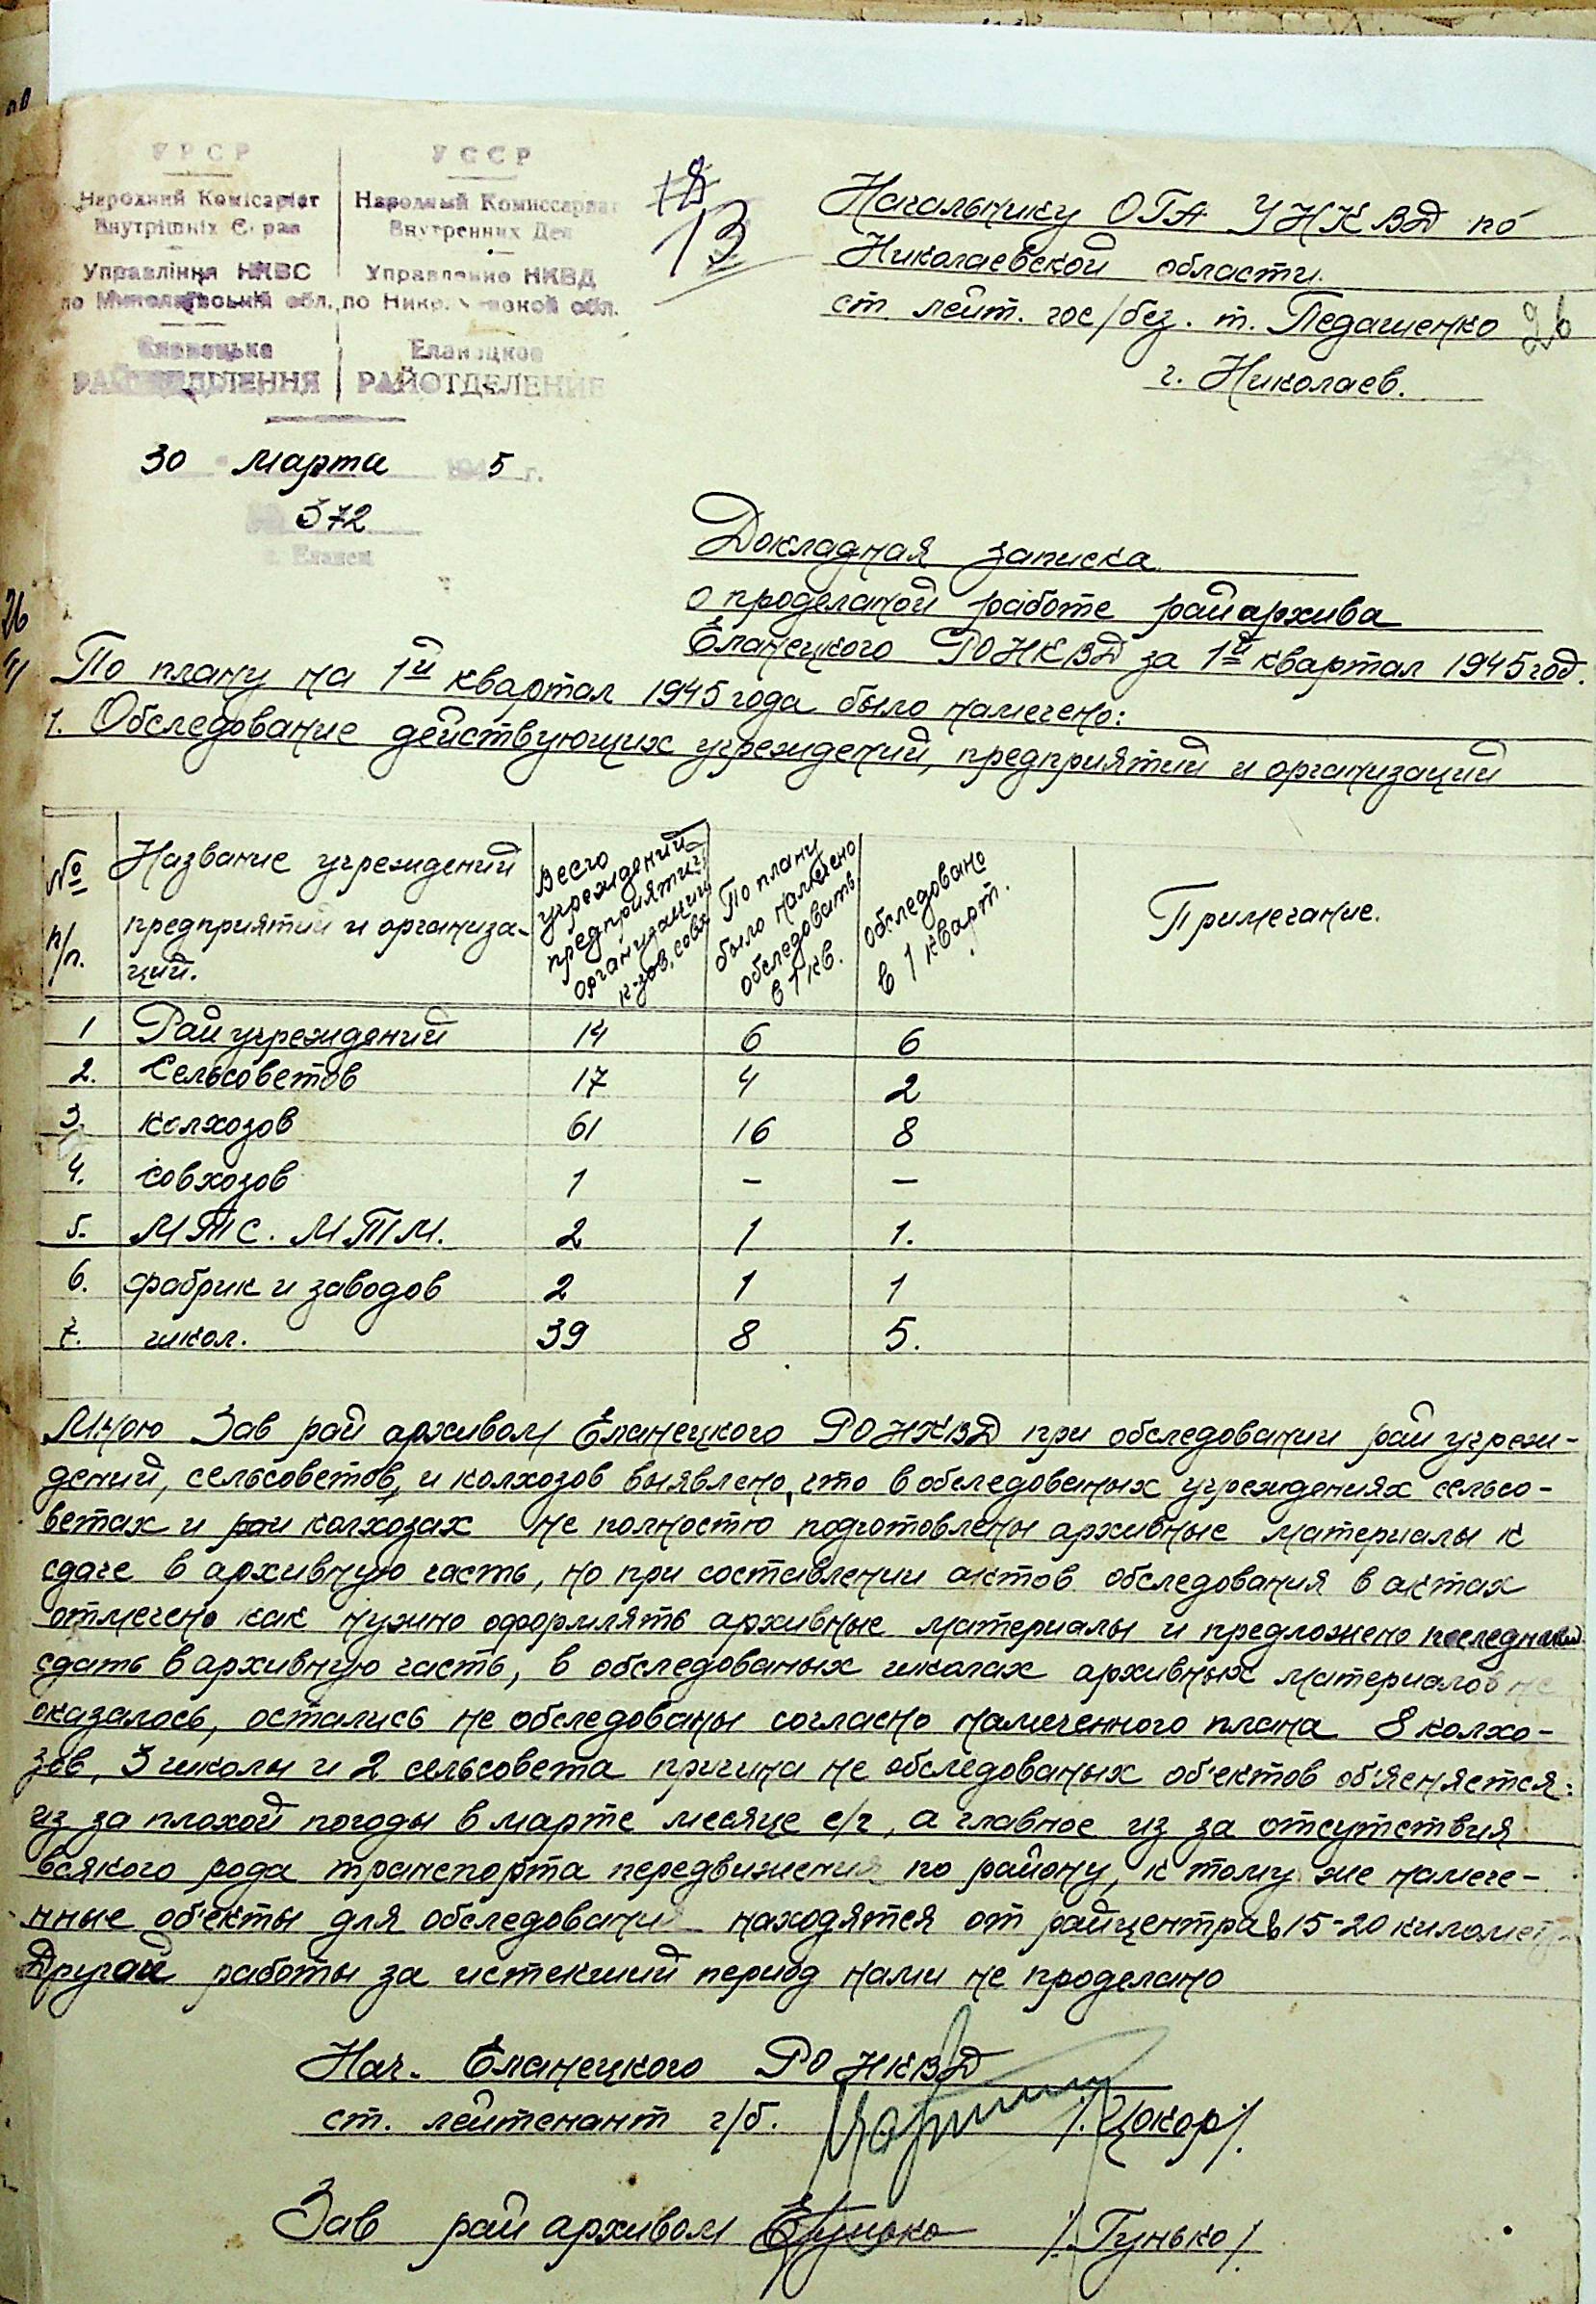 УРСР
Народний Комісаріат
Внутрішніх Справ
Управління НКВС
по Миколаївській обл.
Єланецьке
РАЙВІДДІЛЕННЯ
УССР
Народный Комиссариат
Внутренних Дел
Управление НКВД
по Николаевской обл.
Еланецкое
РАЙОТДЕЛЕНИЕ
30 марта 1945 г.
№ 372
с. Еланец
13
Начальнику ОГА УНКВД по
Николаевской области
ст. лейт. гос/без. т. Педашенко
26
г. Николаев.
Докладная записка
о проделаной работе райархива
Еланецкого РОНКВД за 1й квартал 1945 год.
26
По плану на 1й квартал 1945 года было намечено:
1. Обследование действующих учреждений, предприятий и организаций
№ п/п. | Название учреждений предприятий и организа-ций. | Всего учреждений предприятий организаций к-зов, совх | По плану было намечено обследовать в 1 кв. | обследовано в 1 кварт. | Примечание.
1 Рай учреждений 14 6 6
2. Сельсоветов 17 4 2
3. колхозов 61 16 8
4. совхозов 1 - -
5. МТС. МТМ. 2 1 1.
6. фабрик и заводов 2 1 1
7. школ. 39 8 5.
Мною Зав рай архивом Еланецкого РОНКВД при обследовании рай учреж-
дений, сельсоветов, и колхозов выявлено, что в обследованых учреждениях сельсо-
ветах и колхозах не полностю подготовлены архивные материалы к
сдаче в архивную часть, но при составлении актов обследования в актах
отмечено как нужно оформлять архивные материалы и предложено последним
сдать в архивную часть, в обследованых школах архивных материалов не
оказалось, остались не обследованы согласно намеченного плана 8 колхо-
зов, 3 школы и 2 сельсовета причина не обследованых об'ектов об'ясняется:
из за плохой погоды в марте месяце с/г, а главное из за отсутствия
всякого рода транспорта передвижения по району, к тому же намече-
нные об'екты для обследования находятся от райцентра в 15-20 километ.
Другой работы за истекший период нами не проделано
Нач. Еланецкого РО НКВД
ст. лейтенант г/б. /Цокор/.
Зав рай архивом /Гунько/.